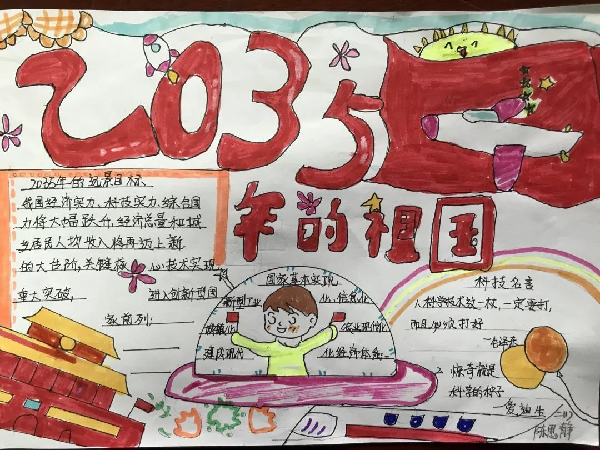 2035
年的祖国
2035年的远景目标、
我国经济实力、科技实力、综合国
力将大幅跃升，经济总量和城
乡居民人均收入将再迈上新
的大台阶，关键核心技术实现
重大突破，进入创新型国
家前列。
国家基本实现
新型工业
化、信息化
城镇化
农业现代化
建成现代
化经济体系
科技名言
1、科学技术这一仗，一定要打，
而且必须打好
—毛泽东
2、惊奇就是
科学的种子
—爱迪生
陈思静